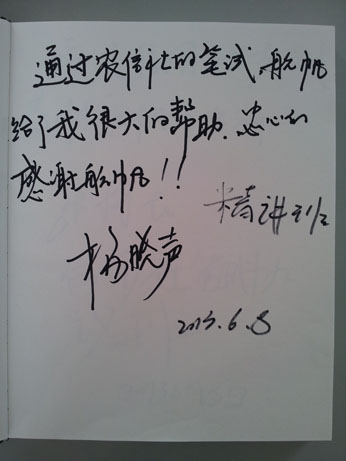 通过农信社的笔试,航帆
给了我很大的帮助.忠心的
感谢航帆!!
精讲班
杨晓声
2015.6.8